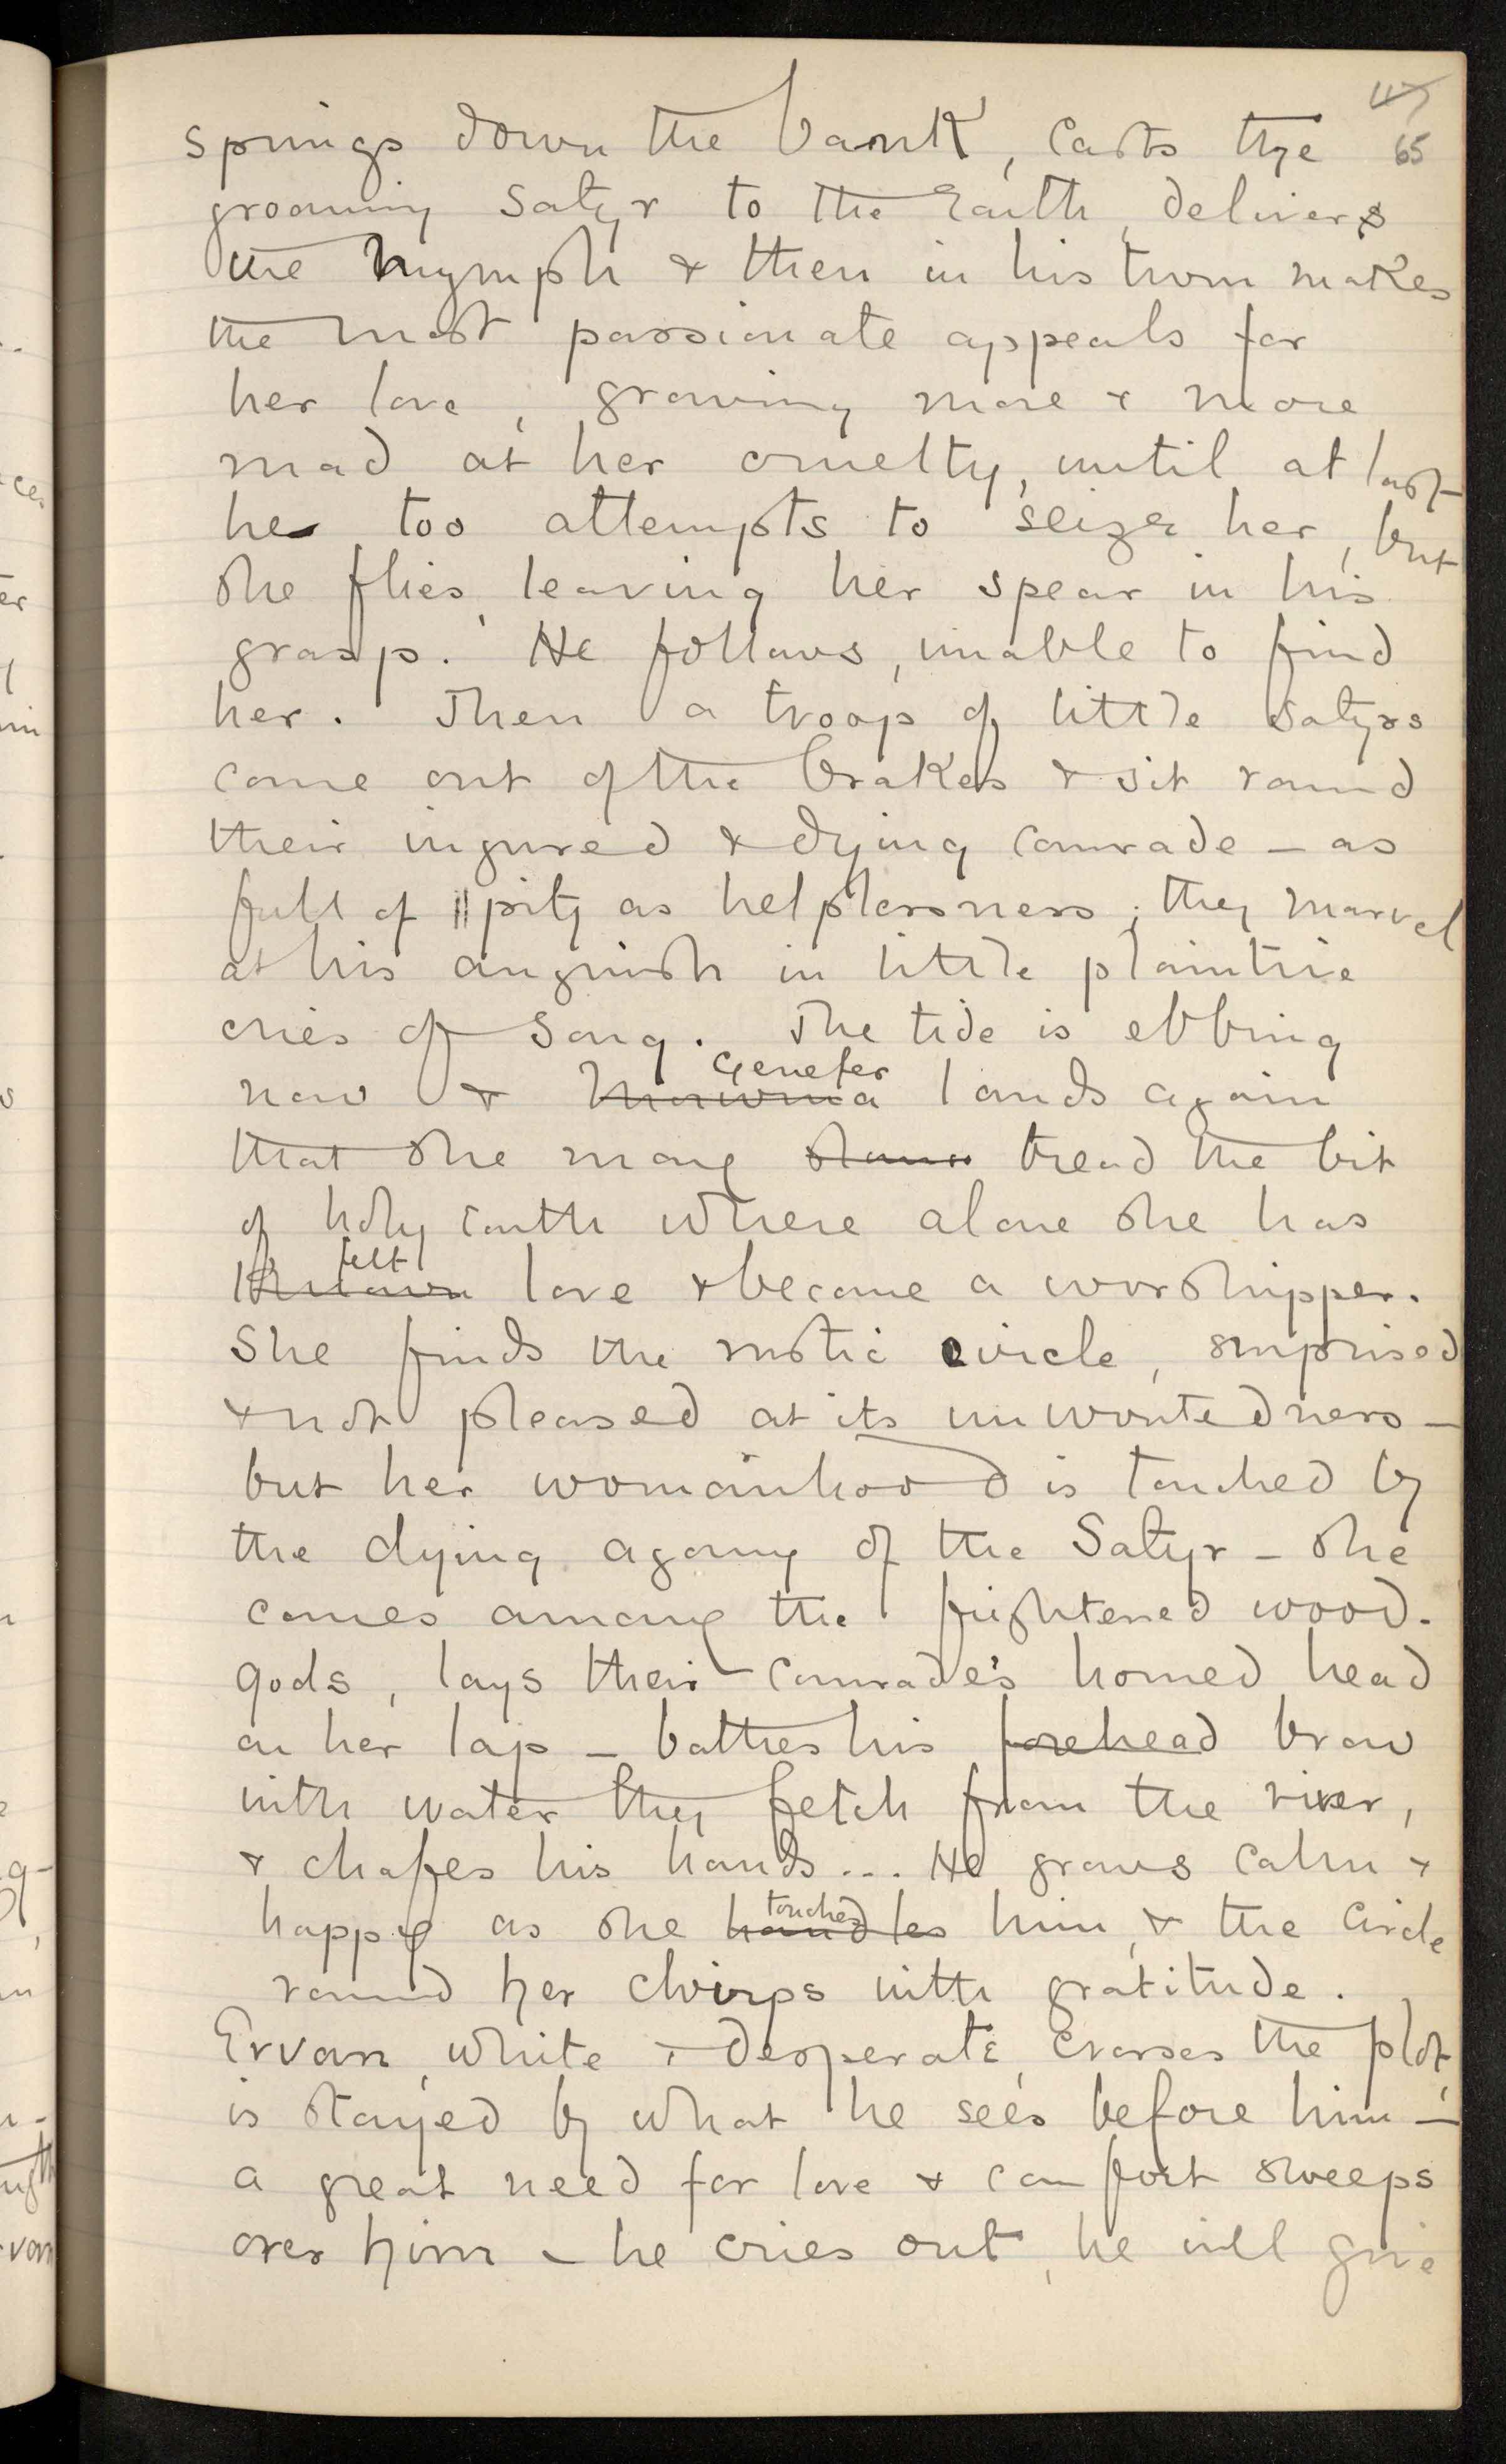 47
65
springs down the bank, casts the
groaning Satyr to the Earth, delivers
the nymph & then in his turn makes
the most passionate appeals for
her love, growing more & more
mad at her cruelty, until at last
he too attempts to seize her, but
she flies, leaving her spear in his
grasp. He follows, unable to find
her. Then a troop of little Satyrs
come out of the brakes & sit round
their injured & dying comrade – as
full of pity as helplessness; they marvel
at his anguish in little plaintive
cries of song. The tide is ebbing
Genefer
now & lands again
that she may tread the bit
of holy earth where alone she has
felt
known love & become a worshipper.
She finds the rustic circle, surprised
& not pleased at its unwontedness –
but her womanhood is touched by
the dying agony of the Satyr – she
comes among the frightened wood-
gods, lays their comrade's horned head
on her lap – bathes his forehead brow
with water they fetch from the river,
& chafes his hands... He grows calm &
touches
happy as she handles him, & the circle
round her chirps with gratitude.
Ervan, white & desperate, crosses the plot,
is stayed by what he sees before him –
a great need for love & comfort sweeps
over him – he cries out, he will give